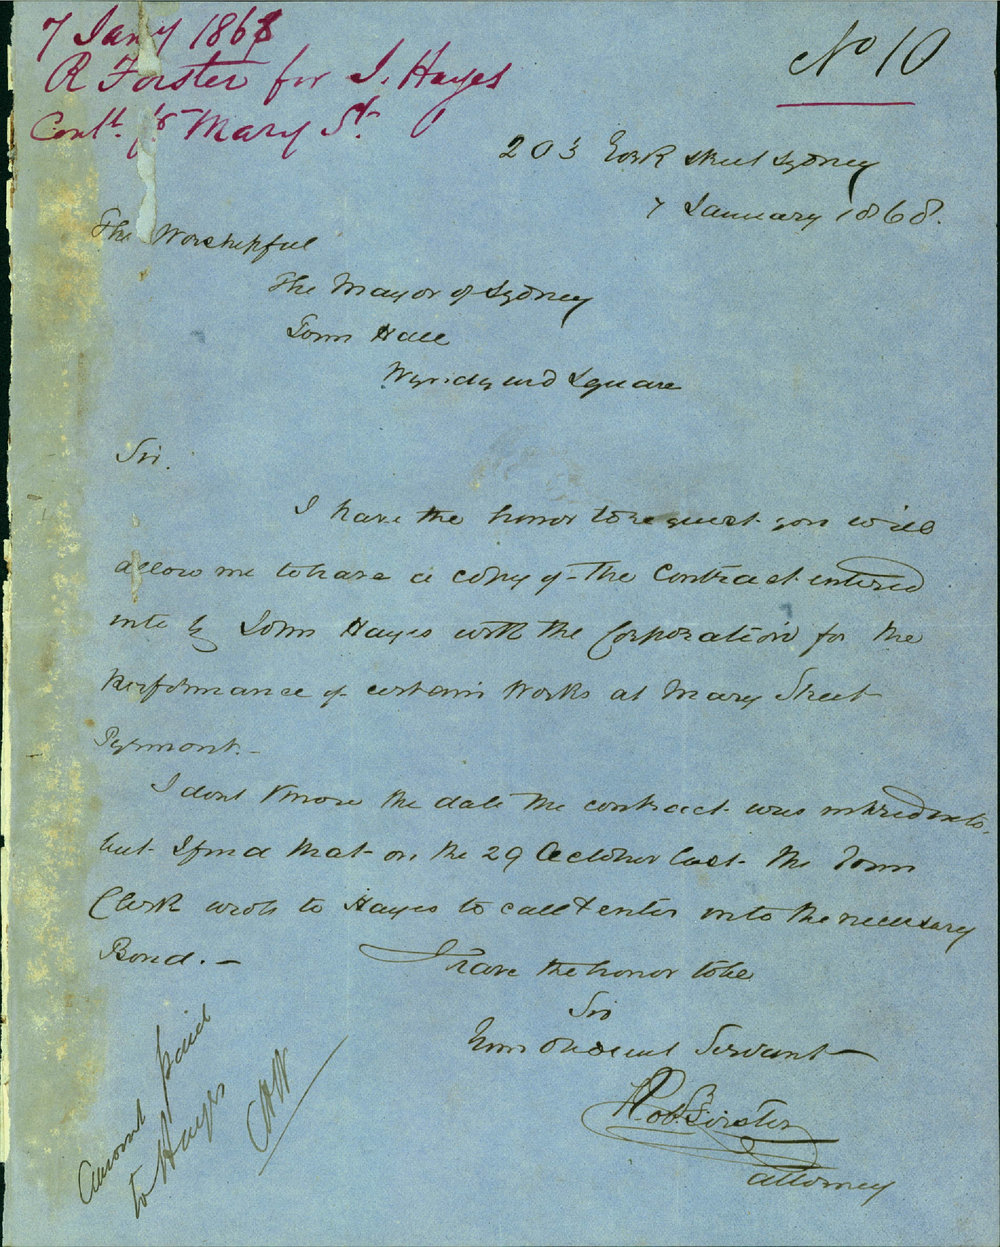 7 Jany 1868
R Forster for J. Hayes
Contt. for Mary St.
No 10
203 York Street Sydney
7 January 1868.
The Worshipful
The Mayor of Sydney
Town Hall
Wynyard Square
Sir.
I have the honor to request you will
allow me to have a copy of the Contract entered
into by John Hayes with the Corporation for the
performance of certain Works at Mary Street
Pyrmont. –
I dont know the date the contract was entered into,
but I find that on the 29 October last the Town
Clerk wrote to Hayes to call & enter into the necessary
Bond. –
I have the honor to be
Sir
Your Obedient Servant
Rob Forster
Attorney
Amount paid
to Hayes